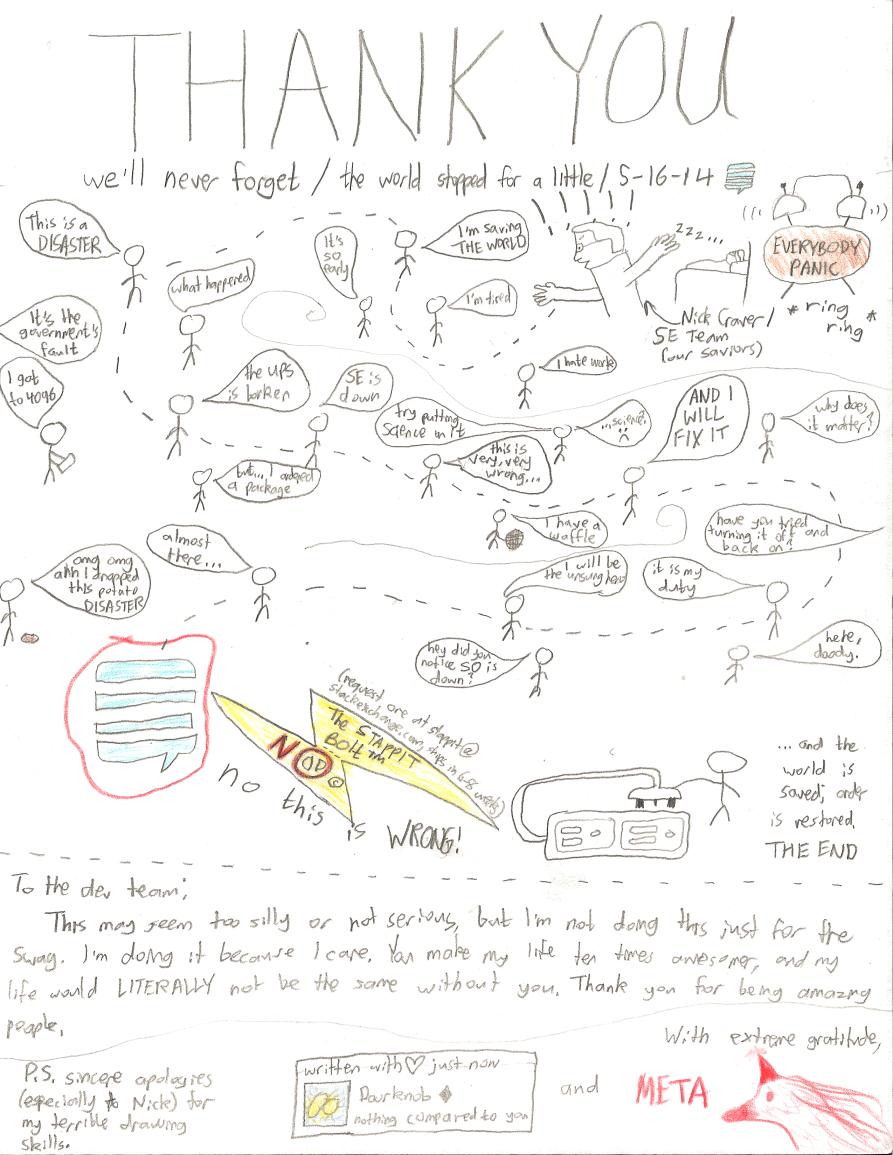 THANK YOU
we'll never forget / the world stopped for a little / 5-16-14
This is a
DISASTER
what happened
It's
so
early
I'm saving
THE WORLD
I'm tired
zzz...
EVERYBODY
PANIC
* ring
ring *
Nick Craver /
SE Team
(our saviors)
It's the
government's
fault
I got
to 4096
the UPS
is borken
SE is
down
I hate work
try putting
science in it
...science?
AND I
WILL
FIX IT
why does
it matter?
but... I ordered
a package
this is
very, very
wrong...
I have a
waffle
have you tried
turning it off and
back on?
omg omg
ahh I dropped
this potato
DISASTER
almost
there...
I will be
the unsung hero
it is my
duty
hey did you
notice SO is
down?
here,
doody.
(request one at stappit@
stackexchange.com, ships in 6-8 weeks)
The STAPPIT
Bolt™
NO
no this
is WRONG!
... and the
world is
saved; order
is restored.
THE END
To the dev team;
This may seem too silly or not serious, but I'm not doing this just for the
swag. I'm doing it because I care. You make my life ten times awesomer, and my
life would LITERALLY not be the same without you. Thank you for being amazing
people.
With extreme gratitude,
P.S. sincere apologies
(especially to Nick) for
my terrible drawing
skills.
written with ♡ just now
Doorknob ♦
nothing compared to you
and
META